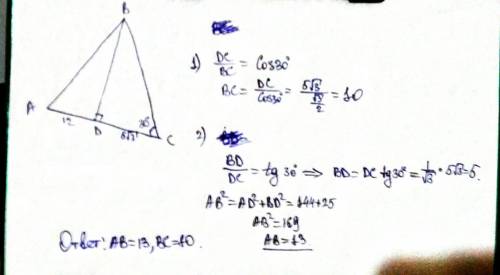 B
A
12
D
5√3
30°
C
1) DC/BC = Cos30°
BC = DC/Cos30° = 5√3/(√3/2) = 10
2)
BD/DC = tg 30° ⇒ BD = DC tg30° = 1/√3 · 5√3 = 5.
AB² = AD² + BD² = 144+25
AB² = 169
AB = 13
Ответ: AB = 13, BC = 10.